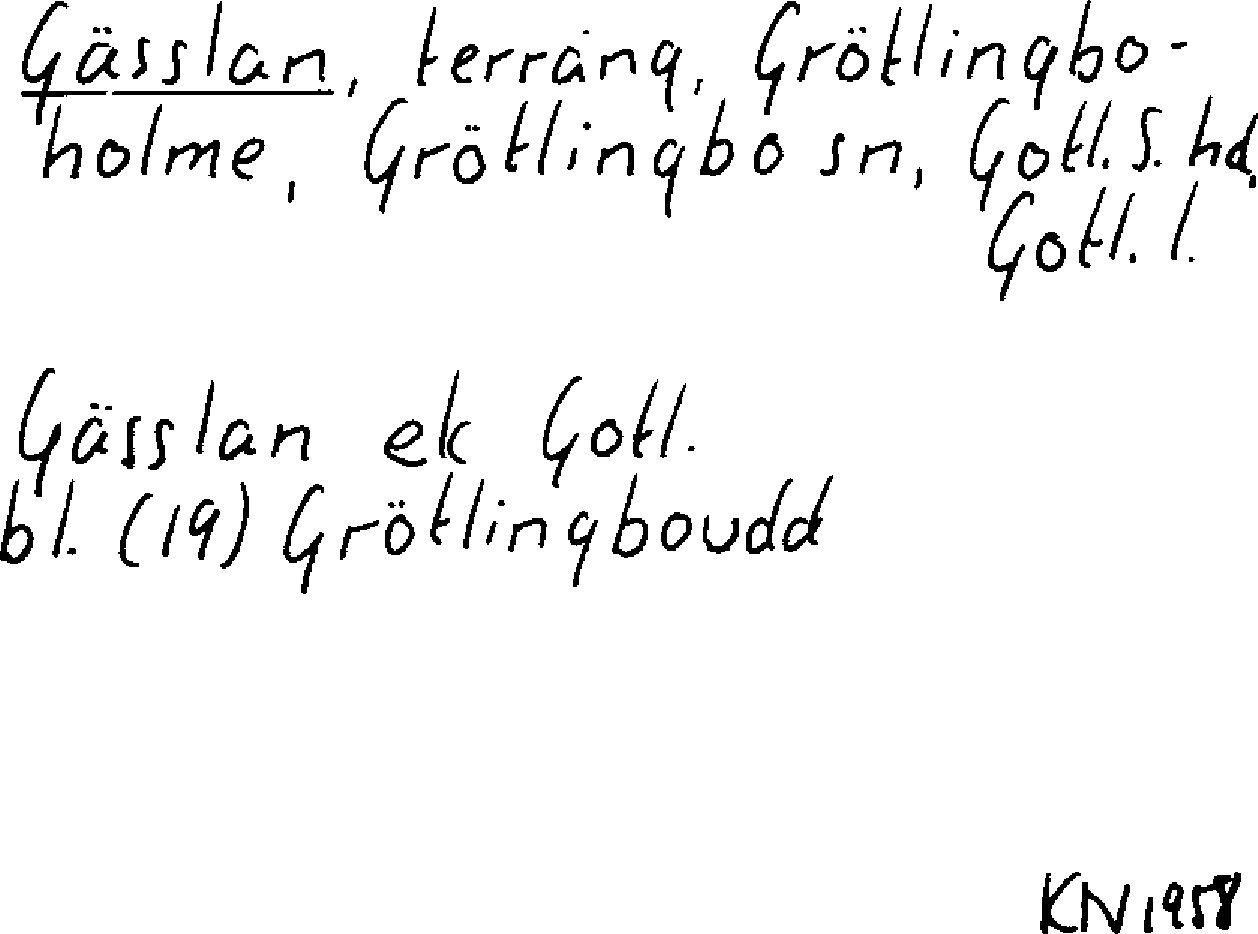 Gässlan, terräng, Grötlingbo-
holme, Grötlingbo sn, Gotl. S. hd,
Gotl. l.
Gässlan ek Gotl.
bl. (19) Grötlingboudd
KN 1958